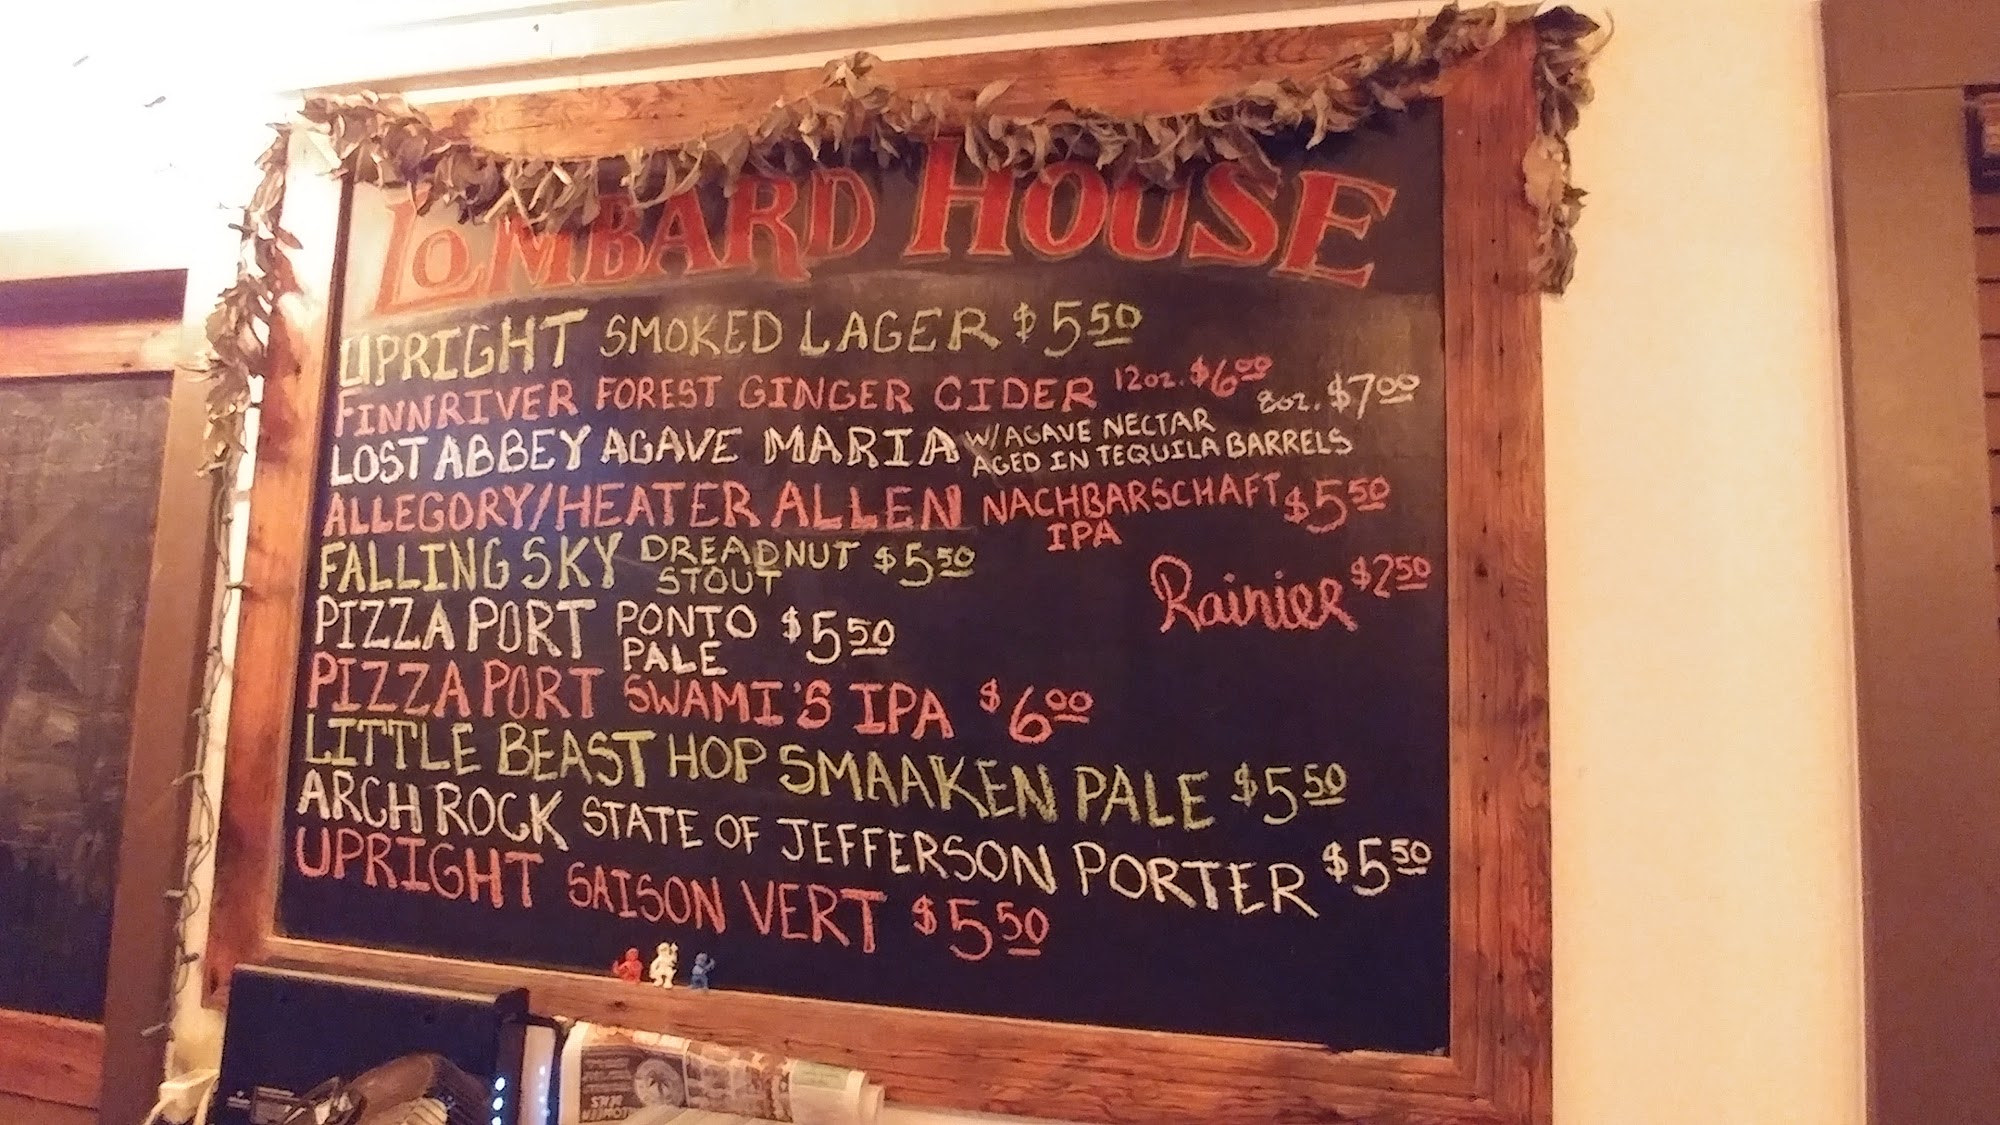 LOMBARD HOUSE
UPRIGHT SMOKED LAGER $5.50
FINNRIVER FOREST GINGER CIDER 12oz. $6.00
LOST ABBEY AGAVE MARIA W/AGAVE NECTAR 8oz. $7.00
AGED IN TEQUILA BARRELS
ALLEGORY/HEATER ALLEN NACHBARSCHAFT $5.50
IPA
FALLING SKY DREADNUT $5.50
STOUT
Rainier $2.50
PIZZA PORT PONTO $5.50
PALE
PIZZA PORT SWAMI'S IPA $6.00
LITTLE BEAST HOP SMAAKEN PALE $5.50
ARCH ROCK STATE OF JEFFERSON PORTER $5.50
UPRIGHT SAISON VERT $5.50